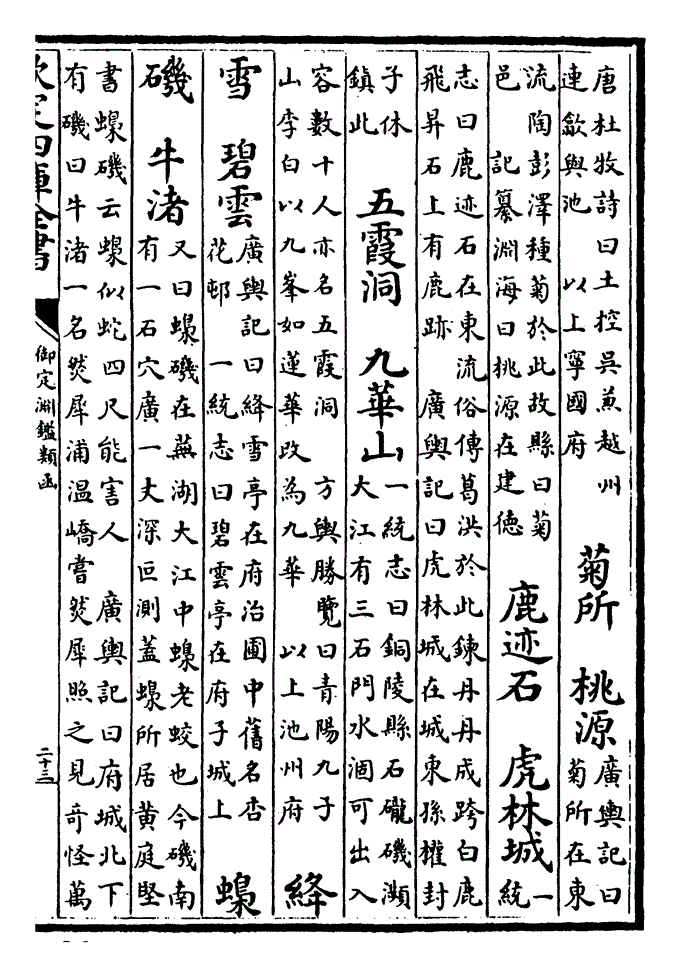 唐杜牧詩曰土控吳兼越州
連歙與池　以上寧國府
菊所　桃源
廣輿記曰
菊所在東
流陶彭澤種菊於此故縣曰菊
邑　記纂淵海曰桃源在建德
鹿迹石　虎林城
一
統
志曰鹿迹石在東流俗傳葛洪於此鍊丹丹成跨白鹿
飛昇石上有鹿跡　廣輿記曰虎林城在城東孫權封
子休
鎮此
五霞洞　九華山
一統志曰銅陵縣石礲磯瀕
大江有三石門水涸可出入
容數十人亦名五霞洞　方輿勝覽曰青陽九子
山李白以九峯如蓮華改為九華　以上池州府
絳
雪　碧雲
廣輿記曰絳雪亭在府治圃中舊名杏
花邨　一統志曰碧雲亭在府子城上
蟂
磯　牛渚
又曰蟂磯在蕪湖大江中蟂老蛟也今磯南
有一石穴廣一丈深叵測蓋蟂所居黄庭堅
書蟂磯云蟂似蛇四尺能害人　廣輿記曰府城北下
有磯曰牛渚一名燃犀浦溫嶠嘗燃犀照之見奇怪萬
欽定四庫全書
御定淵鑑類函
二十三